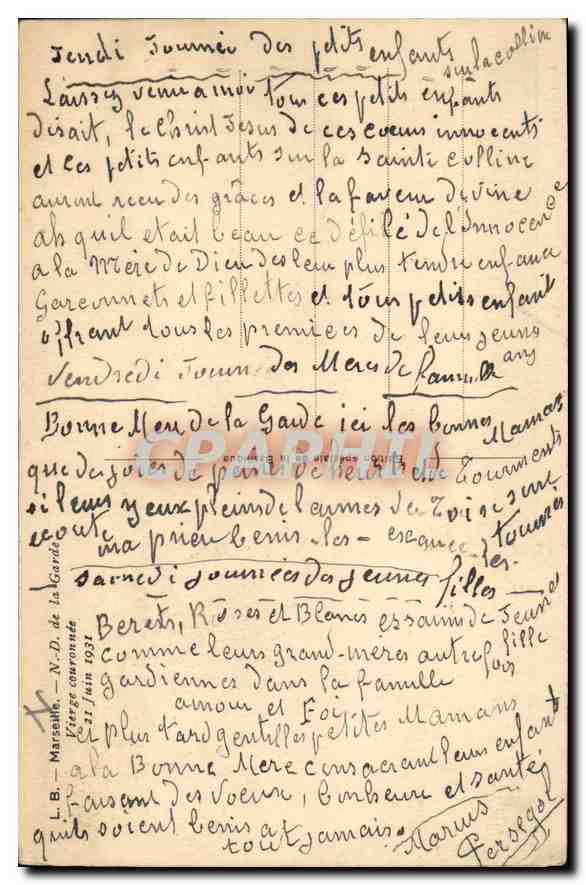 Jeudi Journée des ptits enfants sur la colline
Laissez venir a moi tous ces petits enfants
disait, le Christ Jesus de ces coeurs innocents
et les ptits enfants sur la sainte colline
auront recu des grâces et la faveur divine
ah quil etait beau ce défilé de l'Innocence
a la Mère de Dieu des leur plus tendre enfance
Garconnets et fillettes et tous petits enfant
offrant tous les premices de leurs jeuns ans
Vendredi Journ des Meres de famille
Bonne Mere de la Garde ici les bonnes Mamans
que de joies de paix de et Tourments
si leurs yeux pleins de larmes de Toi se sont tournés
ecoute ma priere benis les exauce les
samedi journées des jeunes filles
Berets, Roses et Blancs essaims de Jeunes fille
comme leurs grand-mères autrefois
gardiennes dans la famille
amour et Foi
et plus tard gentilles petites Mamans
a la Bonne Mere consacrant leurs enfant
faisant des voeux, bonheur et santé
quils soient benis a tout jamais.
Marius Persegol
L. B. — Marseille. — N.-D. de la Garde
Vierge couronnée
21 Juin 1931
Edition spéciale de la Basilique
CPARHIL